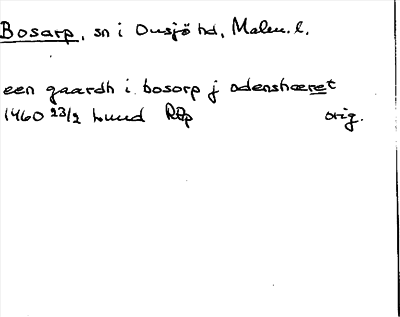 Bosarp, sn i Onsjö hd, Malm. l.
een gaardh i bosorp j odenshæret
1460 23/2 Lund RAp orig.